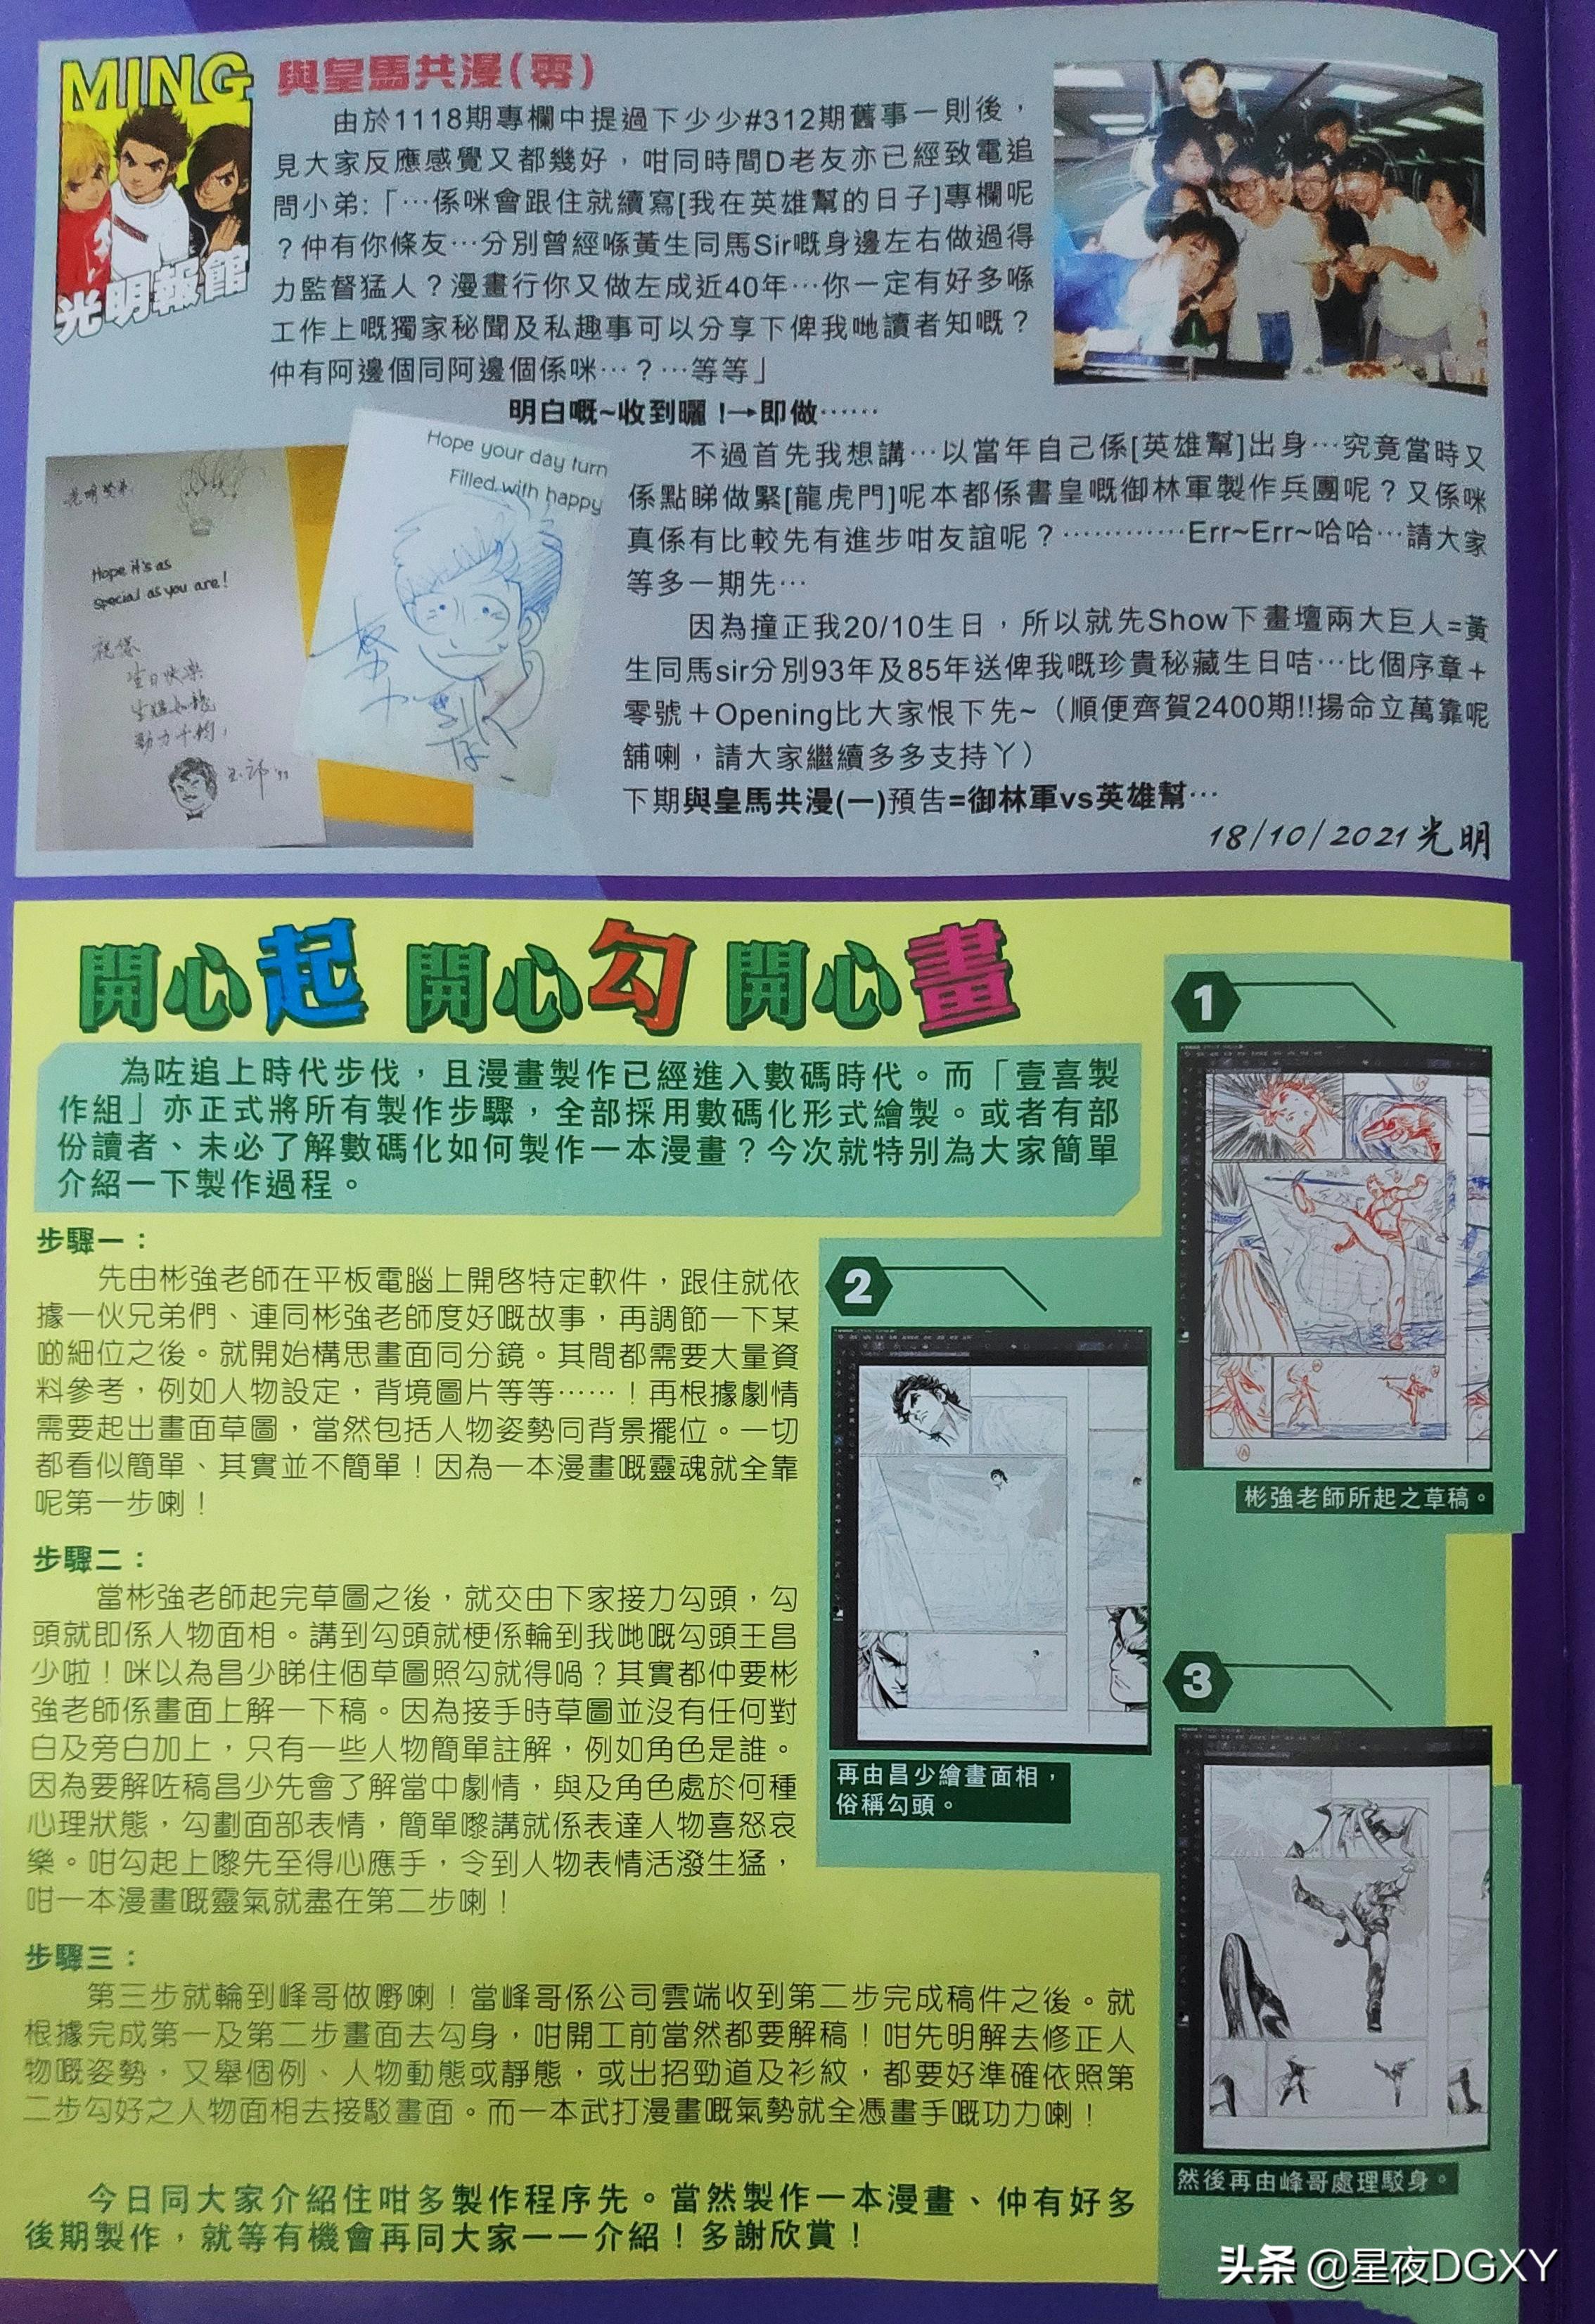 MING
光明報館
與皇馬共漫(零)
由於1118期專欄中提過下少少#312期舊事一則後，
見大家反應感覺又都幾好，咁同時間D老友亦已經致電追
問小弟:「…係咪會跟住就續寫[我在英雄幫的日子]專欄呢
？仲有你條友…分別曾經喺黃生同馬Sir嘅身邊左右做過得
力監督猛人？漫畫行你又做左成近40年…你一定有好多喺
工作上嘅獨家秘聞及私趣事可以分享下俾我哋讀者知嘅？
仲有阿邊個同阿邊個係咪…？…等等」
明白嘅~收到曬！→即做……
不過首先我想講…以當年自己係[英雄幫]出身…究竟當時又
係點睇做緊[龍虎門]呢本都係書皇嘅御林軍製作兵團呢？又係咪
真係有比較先有進步咁友誼呢？…………Err~Err~哈哈…請大家
等多一期先…
因為撞正我20/10生日，所以就先Show下畫壇兩大巨人=黃
生同馬sir分別93年及85年送俾我嘅珍貴秘藏生日咭…比個序章＋
零號＋Opening比大家恨下先~（順便齊賀2400期!!揚命立萬靠呢
舖喇，請大家繼續多多支持丫）
下期與皇馬共漫(一)預告=御林軍vs英雄幫…
18/10/2021光明
Hope it's as
special as you are!
生日快樂
Hope your day turn
Filled with happy
開心起 開心勾 開心畫
為咗追上時代步伐，且漫畫製作已經進入數碼時代。而「壹喜製
作組」亦正式將所有製作步驟，全部採用數碼化形式繪製。或者有部
份讀者、未必了解數碼化如何製作一本漫畫？今次就特別為大家簡單
介紹一下製作過程。
步驟一：
先由彬強老師在平板電腦上開啓特定軟件，跟住就依
據一伙兄弟們、連同彬強老師度好嘅故事，再調節一下某
啲細位之後。就開始構思畫面同分鏡。其間都需要大量資
料參考，例如人物設定，背境圖片等等……！再根據劇情
需要起出畫面草圖，當然包括人物姿勢同背景擺位。一切
都看似簡單、其實並不簡單！因為一本漫畫嘅靈魂就全靠
呢第一步喇！
步驟二：
當彬強老師起完草圖之後，就交由下家接力勾頭，勾
頭就即係人物面相。講到勾頭就梗係輪到我哋嘅勾頭王昌
少啦！咪以為昌少睇住個草圖照勾就得喎？其實都仲要彬
強老師係畫面上解一下稿。因為接手時草圖並沒有任何對
白及旁白加上，只有一些人物簡單註解，例如角色是誰。
因為要解咗稿昌少先會了解當中劇情，與及角色處於何種
心理狀態，勾劃面部表情，簡單嚟講就係表達人物喜怒哀
樂。咁勾起上嚟先至得心應手，令到人物表情活潑生猛，
咁一本漫畫嘅靈氣就盡在第二步喇！
步驟三：
第三步就輪到峰哥做嘢喇！當峰哥係公司雲端收到第二步完成稿件之後。就
根據完成第一及第二步畫面去勾身，咁開工前當然都要解稿！咁先明解去修正人
物嘅姿勢，又舉個例、人物動態或靜態，或出招勁道及衫紋，都要好準確依照第
二步勾好之人物面相去接駁畫面。而一本武打漫畫嘅氣勢就全憑畫手嘅功力喇！
今日同大家介紹住咁多製作程序先。當然製作一本漫畫、仲有好多
後期製作，就等有機會再同大家一一介紹！多謝欣賞！
1
彬強老師所起之草稿。
2
再由昌少繪畫面相，
俗稱勾頭。
3
然後再由峰哥處理駁身。
头条 @星夜DGXY